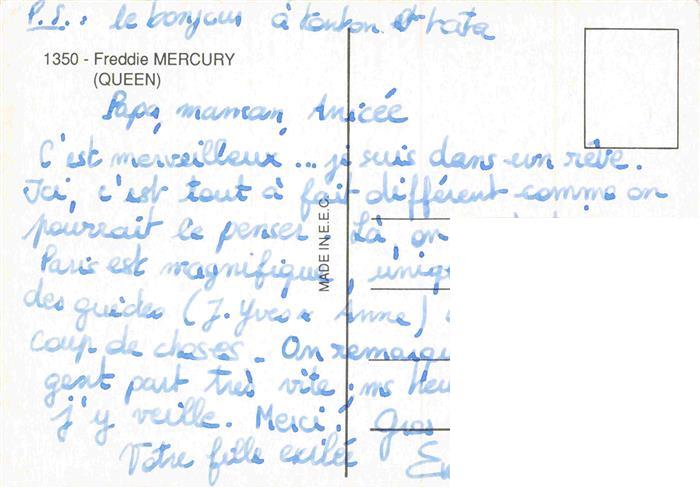 P.S.: le bonjour à tonton et tata
1350 - Freddie MERCURY
(QUEEN)
Papa, maman, Anicée
C'est merveilleux ... je suis dans un rêve.
Ici, c'est tout à fait différent comme on
pourrait le penser. Là, on
Paris est magnifique, uniq
des guides (J. Yves & Anne)
coup de choses - On remarqu
gent part très vite, ms Heu
j'y veille. Merci! Gros
Votre fille exilée
MADE IN E.E.C.